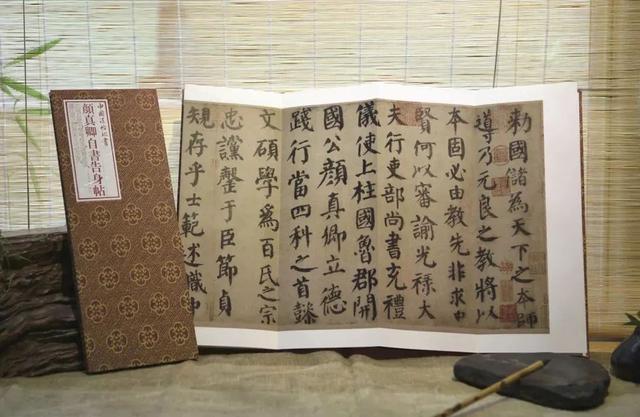 顏真卿自書告身帖
勑國儲為天下之本師
導乃元良之教將以
本固必由教先非求忠
賢何以審諭光祿大
夫行吏部尚書充禮
儀使上柱國魯郡開
國公顏真卿立德
踐行當四科之首懿
文碩學為百氏之宗
忠讜罄于臣節貞
規存乎士範述職中